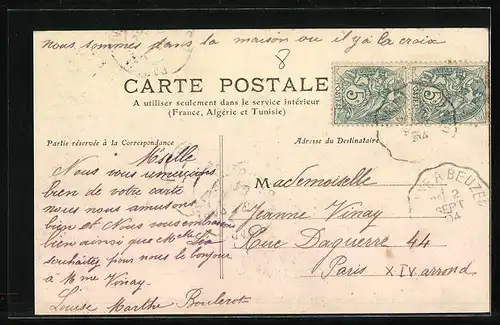 nous sommes dans la maison ou il y à la croix
8
CARTE POSTALE
A utiliser seulement dans le service intérieur
(France, Algérie et Tunisie)
Partie réservée à la Correspondance
Adresse du Destinataire
Mselle
Nous vous remercions
bien de votre carte
nous nous amusons
bien et Nous vous embrassons
bien ainsi que Melle Lea
souhaitez pour nous le bonjour
à Mme Vinay
Louise Marthe Boulerot
Mademoiselle
Jeanne Vinay
Rue Daguerre 44
Paris XIV arrond
5
5
A BEUZE
2
SEPT
04